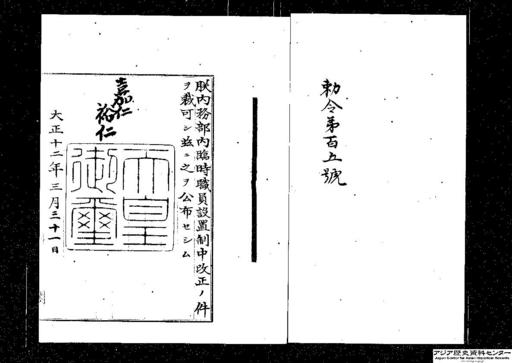 勅令第百五號
朕内務部内臨時職員設置制中改正ノ件
ヲ裁可シ茲ニ之ヲ公布セシム
嘉仁
裕仁
天皇
御璽
大正十二年三月三十一日
アジア歴史資料センター
Japan Center for Asian Historical Records